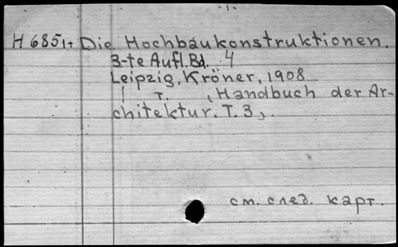 H 685, т Die Hochbaukonstruktionen.
3-te Aufl. Bd. 4
Leipzig, Kröner, 1908
T. , Handbuch der Ar-
chitektur. T. 3,.
см. след. карт.